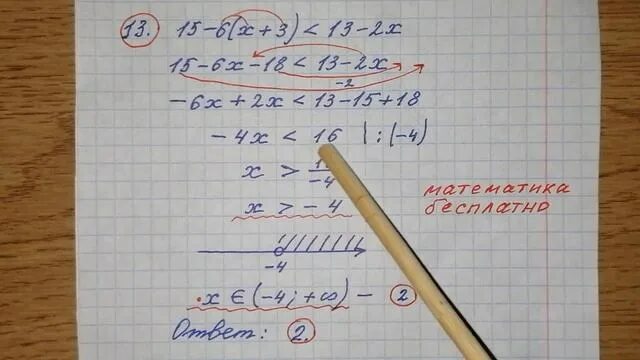 13. 15-6(x+3)<13-2x
15-6x-18<13-2x
-2
-6x+2x<13-15+18
-4x < 16 |:(-4)
x > -4
математика
бесплатно
x > -4
-4
x ∈ (-4; +∞) - 2
Ответ: 2.